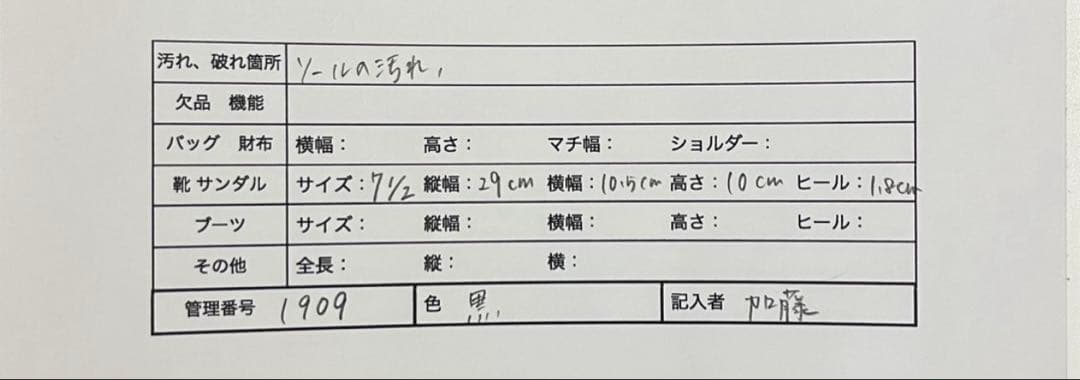 汚れ、破れ箇所 ソールの汚れ,
欠品 機能
バッグ 財布 横幅： 高さ： マチ幅： ショルダー：
靴 サンダル サイズ：7 1/2 縦幅：29cm 横幅：10.5cm 高さ：10cm ヒール：1.8cm
ブーツ サイズ： 縦幅： 横幅： 高さ： ヒール：
その他 全長： 縦： 横：
管理番号 1909 色 黒 記入者 加藤